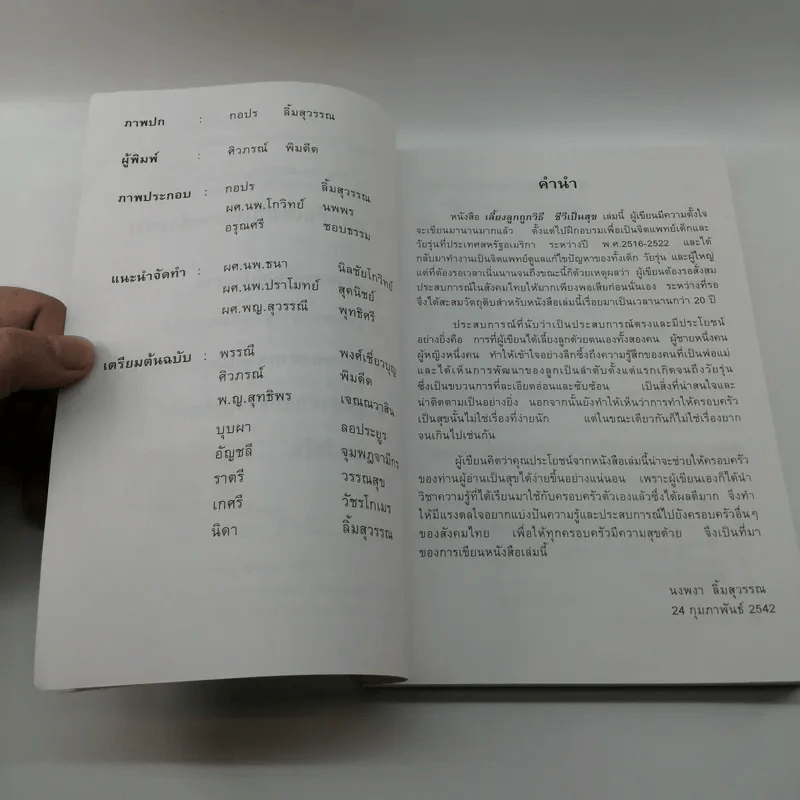 ภาพปก : กอปร ลิ้มสุวรรณ
ผู้พิมพ์ : ศิวภรณ์ พิมดีด
ภาพประกอบ : กอปร ลิ้มสุวรรณ
ผศ.นพ.โกวิทย์ นพพร
อรุณศรี ชอบธรรม
แนะนำจัดทำ : ผศ.นพ.ธนา นิลชัยโกวิทย์
ผศ.นพ.ปราโมทย์ สุคนิชย์
ผศ.พญ.สุวรรณี พุทธิศรี
เตรียมต้นฉบับ : พรรณี พงศ์เชี่ยวบุญ
ศิวภรณ์ พิมดีด
พ.ญ.สุทธิพร เจณณวาสิน
บุบผา ลอประยูร
อัญชลี จุมพฎจามีกร
ราตรี วรรณสุข
เกศรี วัชรโกเมร
นิดา ลิ้มสุวรรณ
คำนำ
หนังสือ เลี้ยงลูกถูกวิธี ชีวีเป็นสุข เล่มนี้ ผู้เขียนมีความตั้งใจ
จะเขียนมานานมากแล้ว ตั้งแต่ไปฝึกอบรมเพื่อเป็นจิตแพทย์เด็กและ
วัยรุ่นที่ประเทศสหรัฐอเมริกา ระหว่างปี พ.ศ.2516-2522 และได้
กลับมาทำงานเป็นจิตแพทย์ดูแลแก้ไขปัญหาของทั้งเด็ก วัยรุ่น และผู้ใหญ่
แต่ที่ต้องรอเวลาเนิ่นนานจนถึงขณะนี้ก็ด้วยเหตุผลว่า ผู้เขียนต้องรอสั่งสม
ประสบการณ์ในสังคมไทยให้มากเพียงพอเสียก่อนนั่นเอง ระหว่างที่รอ
จึงได้สะสมวัตถุดิบสำหรับหนังสือเล่มนี้เรื่อยมาเป็นเวลานานกว่า 20 ปี
ประสบการณ์ที่นับว่าเป็นประสบการณ์ตรงและมีประโยชน์
อย่างยิ่งคือ การที่ผู้เขียนได้เลี้ยงลูกด้วยตนเองทั้งสองคน ผู้ชายหนึ่งคน
ผู้หญิงหนึ่งคน ทำให้เข้าใจอย่างลึกซึ้งถึงความรู้สึกของคนที่เป็นพ่อแม่
และได้เห็นการพัฒนาของลูกเป็นลำดับตั้งแต่แรกเกิดจนถึงวัยรุ่น
ซึ่งเป็นขบวนการที่ละเอียดอ่อนและซับซ้อน เป็นสิ่งที่น่าสนใจและ
น่าติดตามเป็นอย่างยิ่ง นอกจากนั้นยังทำให้เห็นว่าการทำให้ครอบครัว
เป็นสุขนั้นไม่ใช่เรื่องที่ง่ายนัก แต่ในขณะเดียวกันก็ไม่ใช่เรื่องยาก
จนเกินไปเช่นกัน
ผู้เขียนคิดว่าคุณประโยชน์จากหนังสือเล่มนี้น่าจะช่วยให้ครอบครัว
ของท่านผู้อ่านเป็นสุขได้ง่ายขึ้นอย่างแน่นอน เพราะผู้เขียนเองก็ได้นำ
วิชาความรู้ที่ได้เรียนมาใช้กับครอบครัวตัวเองแล้วซึ่งได้ผลดีมาก จึงทำ
ให้มีแรงดลใจอยากแบ่งปันความรู้และประสบการณ์ไปยังครอบครัวอื่นๆ
ของสังคมไทย เพื่อให้ทุกครอบครัวมีความสุขด้วย จึงเป็นที่มา
ของการเขียนหนังสือเล่มนี้
นงพงา ลิ้มสุวรรณ
24 กุมภาพันธ์ 2542